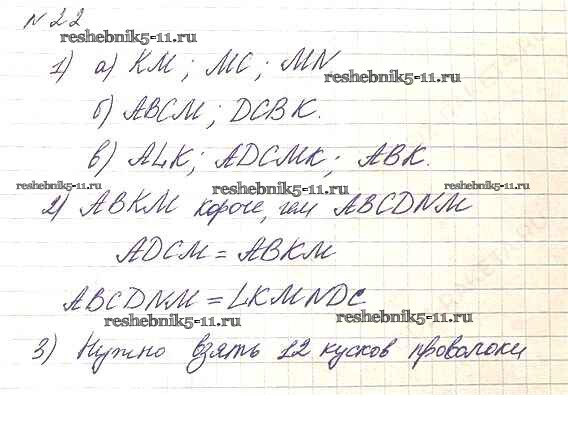 № 22
reshebnik5-11.ru
1) а) KM; MC; MN
reshebnik5-11.ru
б) ABCM; DCBK.
reshebnik5-11.ru
в) ALK; ADCMK; ABK.
reshebnik5-11.ru reshebnik5-11.ru reshebnik5-11.ru
2) ABKM короче, чем ABCDNM
ADCM = ABKM
ABCDNM = LKMNDC
reshebnik5-11.ru reshebnik5-11.ru
3) Нужно взять 12 кусков проволоки